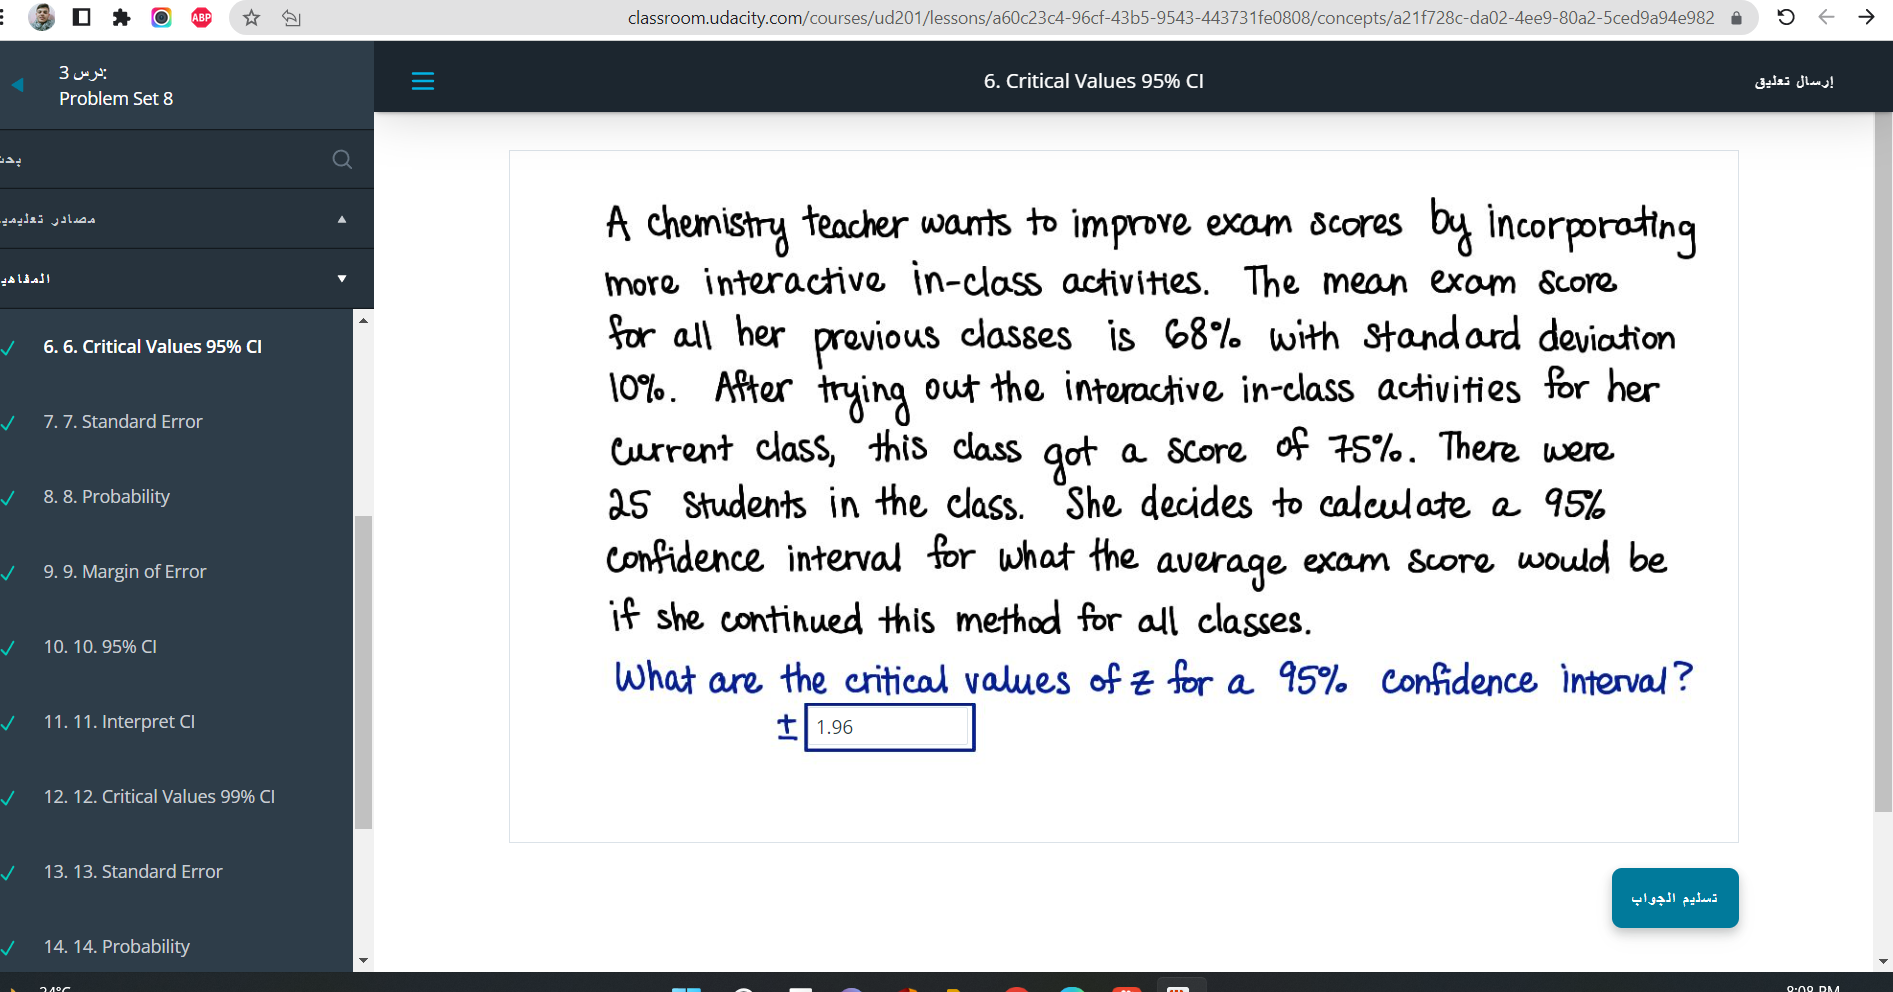 ABP
classroom.udacity.com/courses/ud201/lessons/a60c23c4-96cf-43b5-9543-443731fe0808/concepts/a21f728c-da02-4ee9-80a2-5ced9a94e982
درس 3:
Problem Set 8
6. Critical Values 95% CI
إرسال تعليق
6. 6. Critical Values 95% CI
7. 7. Standard Error
8. 8. Probability
9. 9. Margin of Error
10. 10. 95% CI
11. 11. Interpret CI
12. 12. Critical Values 99% CI
13. 13. Standard Error
14. 14. Probability
A chemistry teacher wants to improve exam scores by incorporating
more interactive in-class activities. The mean exam score
for all her previous classes is 68% with standard deviation
10%. After trying out the interactive in-class activities for her
current class, this class got a score of 75%. There were
25 students in the class. She decides to calculate a 95%
confidence interval for what the average exam score would be
if she continued this method for all classes.
What are the critical values of z for a 95% confidence interval?
± 1.96
تسليم الجواب